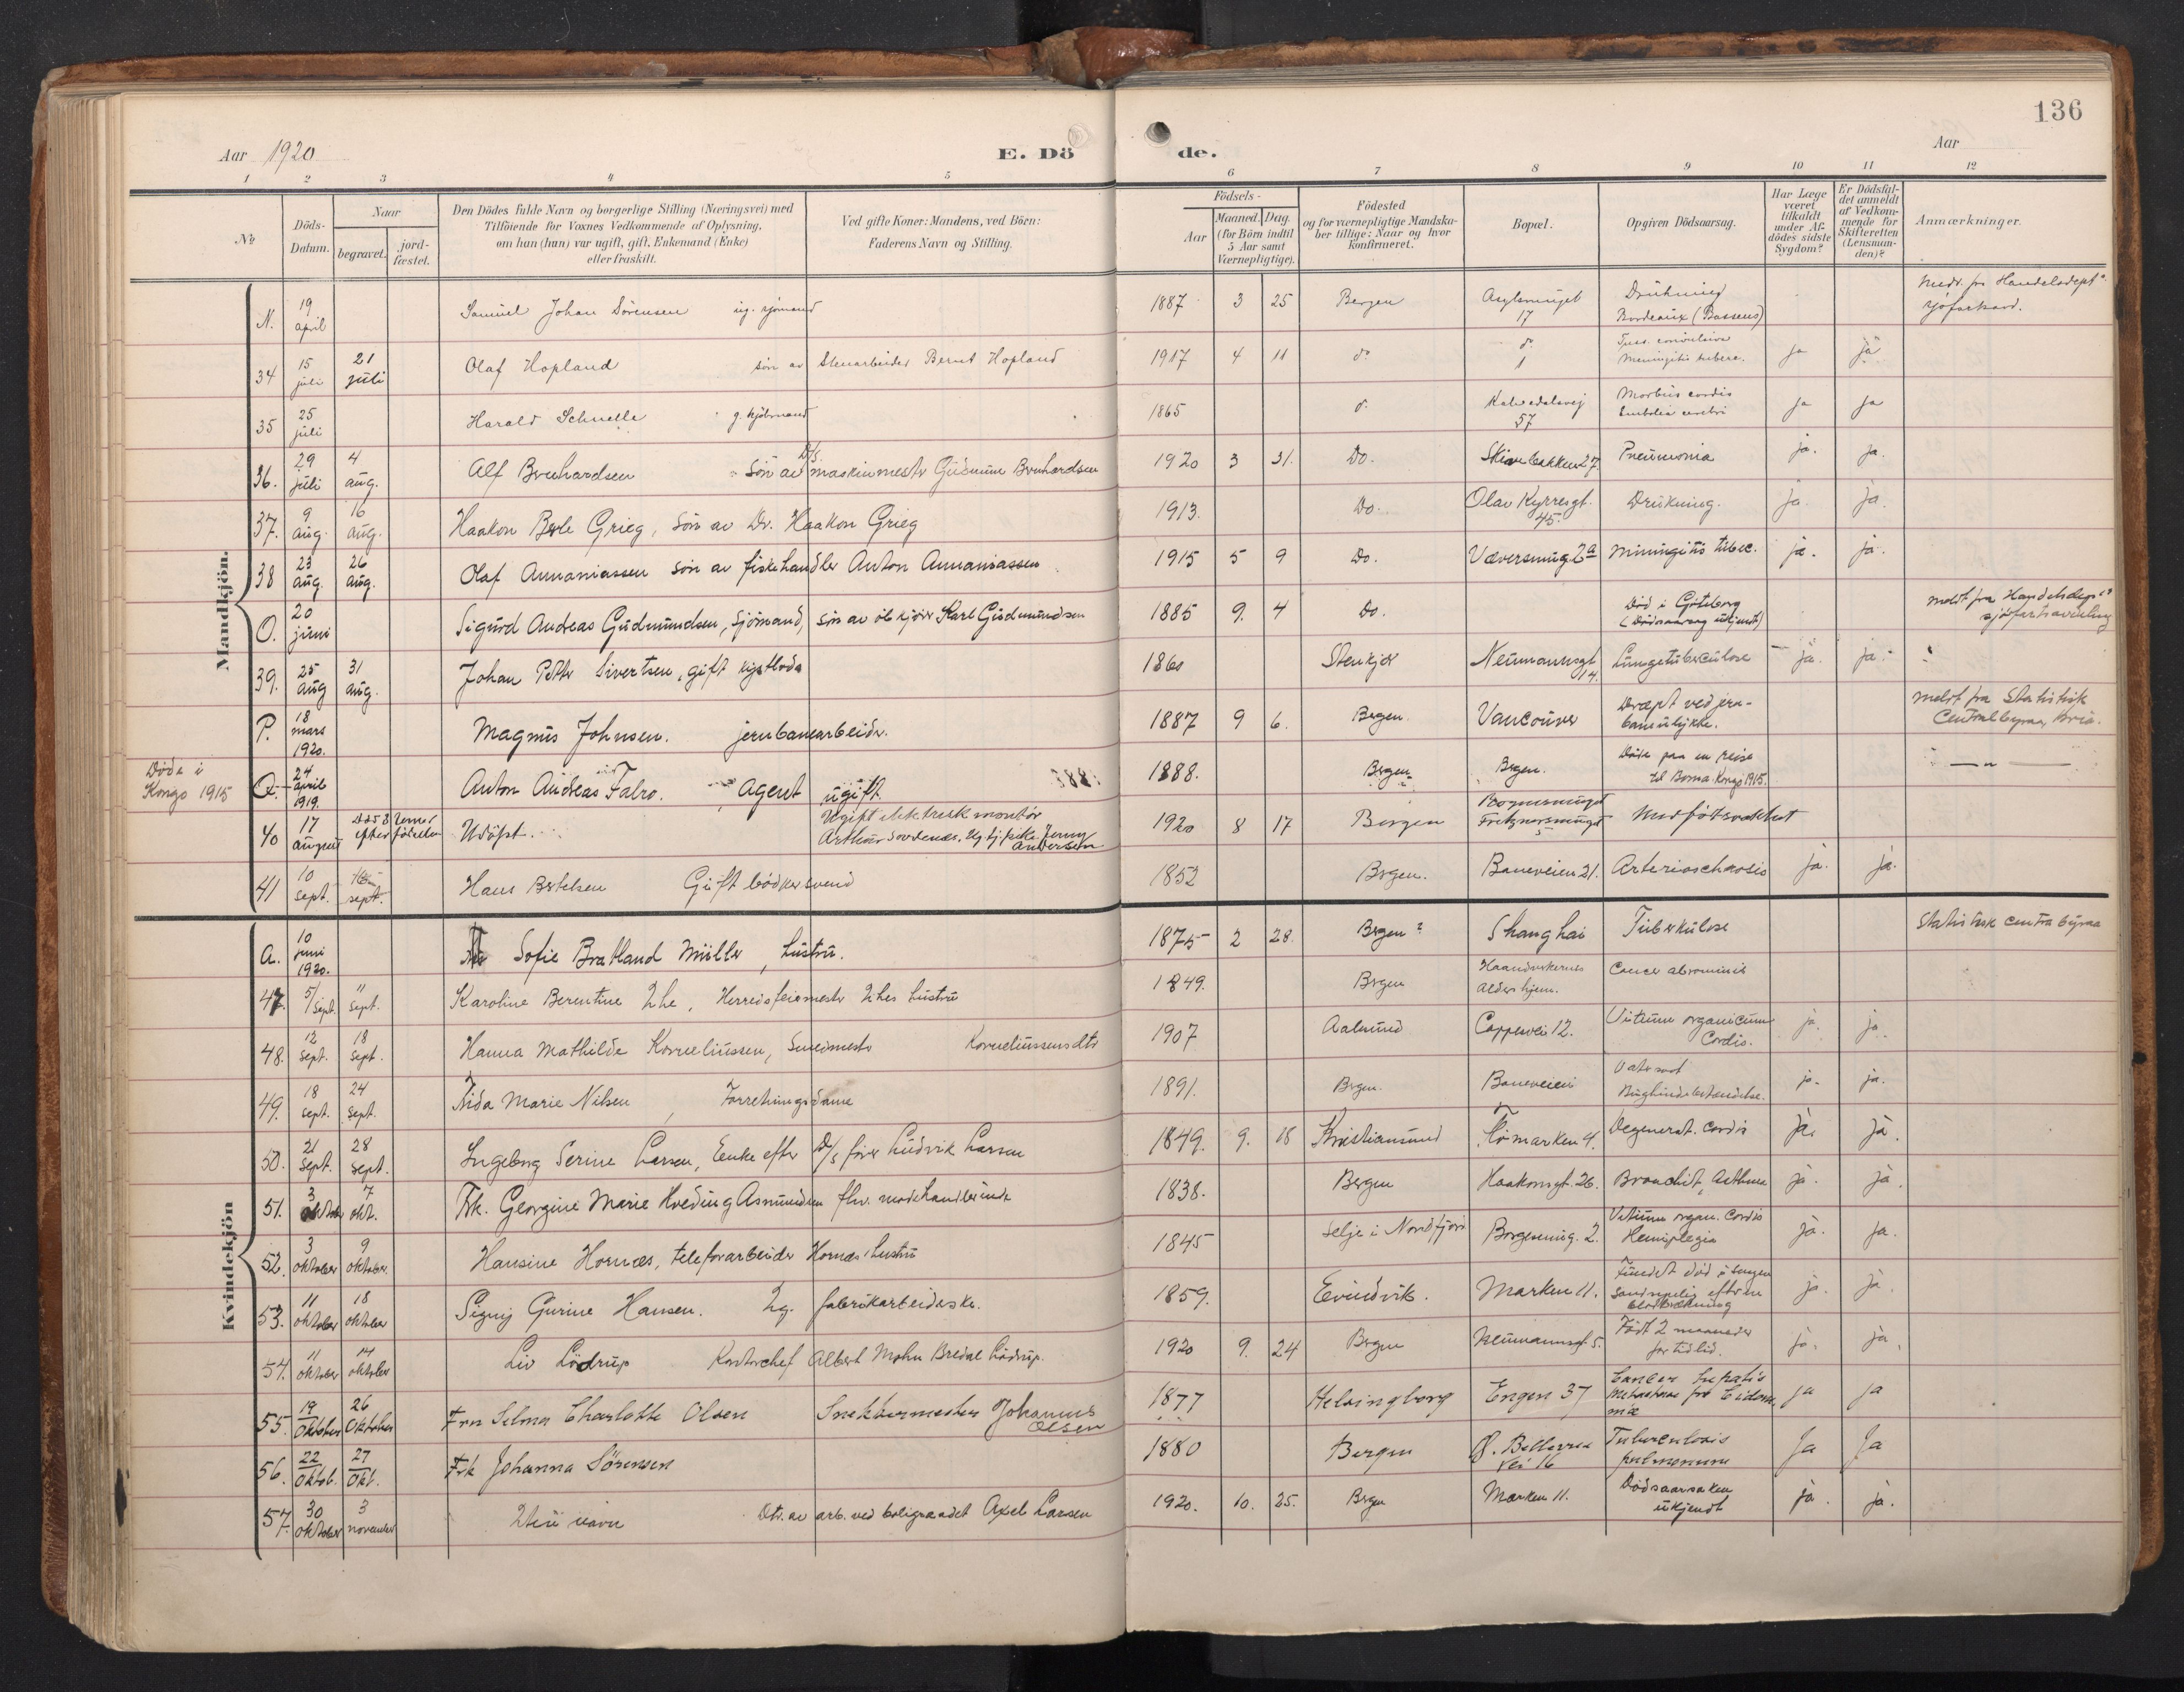 136
Aar 1920
E. Dö
de.
Aar
1 2 3 4 5 6 7 8 9 10 11 12
№
Döds-
Datum.
Naar
begravet.
jord-
fæstet.
Den Dödes fulde Navn og borgerlige Stilling (Næringsvei) med
Tilföiende for Voxnes Vedkommende af Oplysning,
om han (hun) var ugift, gift, Enkemand (Enke)
eller fraskilt.
Ved gifte Koner: Mandens, ved Börn:
Faderens Navn og Stilling.
Födsels-
Aar
Maaned. Dag.
(for Börn indtil
5 Aar samt
Værnepligtige).
Födested
og for værnepligtige Mandska-
ber tillige: Naar og hvor
konfirmeret.
Bopæl.
Opgiven Dödsaarsag.
Har Læge
været
tilkaldt
under Af-
dödes sidste
Sygdom?
Er Dödsfal-
det anmeldt
af Vedkom-
mende for
Skifteretten
(Lensman-
den)?
Anmærkninger.
Mandkjön.
N. 19 april Samuel Johan Sörensen ug. sjömand 1887 3 25 Bergen 17 Drukning Bordeaux (Bassens)
34 15 juli 21 juli Olaf Hopland sön av Stenarbeider Bernt Hopland 1917 4 11 do do 1 Meningitis tuberc. ja ja
35 25 juli Harald Schnelle g. kjöbmand 1865 do Kalvedalsvej 57 Morbus cordis Embolia cerebri ja ja
36. 29 juli 4 aug. Alf Bernhardsen sön av D/S maskinmester Gudmun Bernhardsen 1920 3 31. Do. Skivebakken 27. Pneumonia ja. ja.
37. 9 aug. 16 aug. Haakon Berle Grieg, sön av Dr. Haakon Grieg 1913. Do. Olav Kyrresgt. 45. Drukning. ja. ja.
38 23 aug. 26 aug. Olaf Annaniassen sön av fiskehandler Anton Annaniassen 1915 5 9 Do. Væversmug 2a Miningitis tuberc. ja. ja.
O. 20 juni Sigurd Andreas Gudmundsen, Sjömand, sön av ölkjörer Karl Gudmundsen 1885 9. 4 Do. Död i Göteborg (Dödsaarsag ukjendt) meldt fra Handelsdept sjöfartsavdeling
39. 25 aug 31 aug. Johan Petter Sivertsen, gift kystlods 1860 Stenkjer Neumannsgt 14. Lungetuberculose ja. ja.
P. 18 mars 1920. Magnus Johnsen. jernbanearbeider. 1887 9 6. Bergen. Vancouver Dræpt ved jern-
banulykke. meldt fra Statistisk
Centralbyraa, Kria.
Döde i
Kongo 1915
Q. 24 april 1919. Anton Andreas Falro. Agent ugift. 1888. Bergen Bergen. Döde paa en reise
til Boma Kongo 1915. — " —
40 17 august Udöpt. Ugift elektrisk montör
Arthur 1920 8 17 Bergen
41 10 sept. sept. Hans Bertelsen Gift bödkersvend 1852 Bergen. Baneveien 21. ja. ja.
Kvindekjön
A. 10 juni 1920. Sofie Bratland Müller, hustru. 1875 2 28. Bergen? Shanghai Tuberkulose Statistisk centralbyraa
47. 5/ Sept. 11 sept. Karoline Berentine Ihle, Herredsfeiermester Ihles hustru 1849. Bergen Haandverkernes
Aldershjem. Cancer abdominis
48. 12 sept. 18 sept. Hanna Mathilde Korneliussen, Smedmester Korneliussens dtr 1907 Aalesund Cappesvei 12. Vitium organicum
Cordis. ja ja.
49. 18 sept. 24 sept. Aida Marie Nilsen, Forretningsdame 1891. Bergen. Baneveien Bughindebetændelse. ja. ja.
50. 21 sept. 28 sept. Ingeborg Serine Larsen, Enke efter D/S förer Ludvik Larsen 1849. 9. 18 Kristiansund Flömarken 4. Degenerat. cordis ja. ja.
51. 3 oktober 7 okt. Frk. Georgine Marie Hveding Asmundsen fhv. modehandlerinde 1838. Bergen Haakonsgt. 26. Bronchit, Asthma ja. ja.
52. 3 oktober 9 oktober. Hansine Hornæs, telefonarbeider Hornæs' hustru 1845 Selje i Nordfjord Borgermug. 2. Vitium organ. Cordis
Hemiplegia ja. ja.
53. 11 oktober 18 oktober Signy Gurine Hansen. Ug. fabrikarbeiderske. 1859. Evindvik. Marken 11. Fundet död i sengen
sandsynlig efter en
blodbrækning ja. ja.
54. 11 oktober 14 oktober Liv Lödrup Kontorchef Albert Mohn Bredal Lödrup. 1920 9. 24 Bergen Neumannsgt. 5. Födt 2 maaneder
for tidlid. ja. ja.
55. 19 Oktober 26 Oktober Fru Selma Charlotte Olsen Snekkermester Johannes
Olsen 1877 Helsingborg Engen 37 Cancer hepatis ja ja
56. 22 Oktob. 27 Okt. Frk Johanna Sörensen 1880 Bergen Ø. Bellevue
vei 16 Tuberculosis
pulmonum Ja Ja
57. 30 oktober 3 november Uten navn Dtr. av arb. ved boligraadet Axel Larsen 1920. 10. 25. Bergen Marken 11. Dödsaarsaken
ukjendt ja. ja.